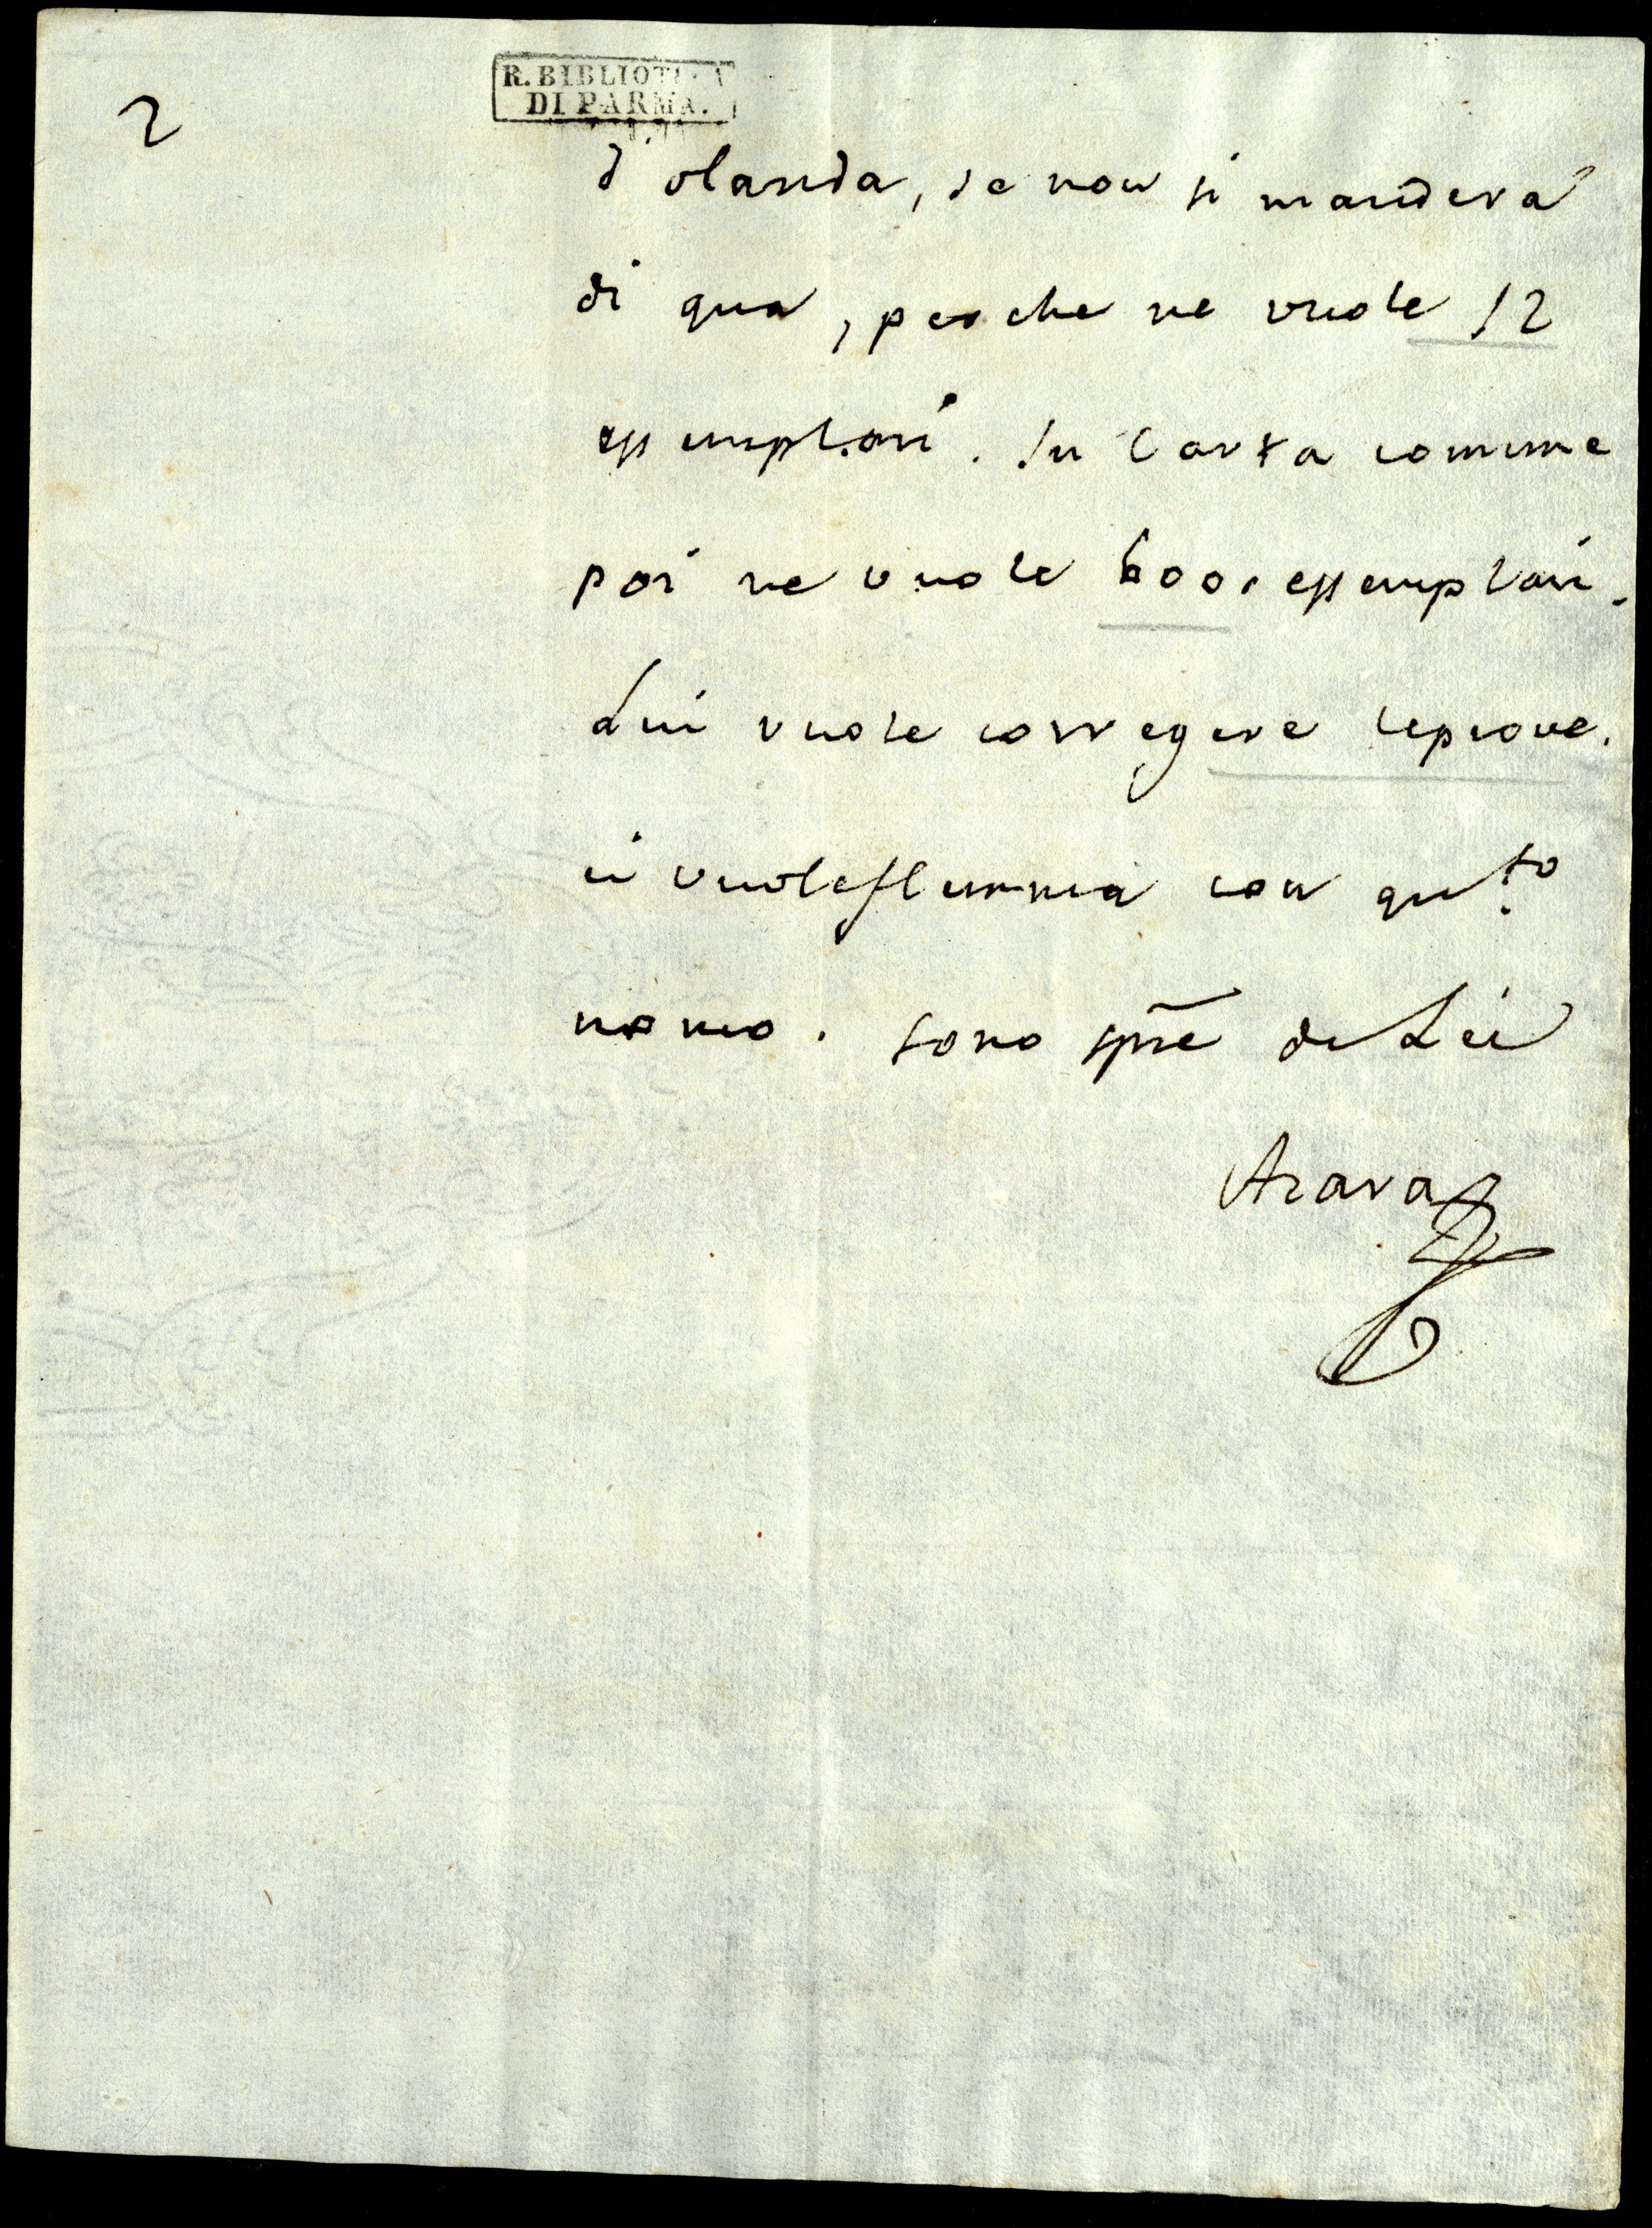 2
R. BIBLIOTECA
DI PARMA.
d'olanda, se non si manderà
di qua, perche ne vuole 12
essemplari. In Carta comune
poi ne vuole 600. essemplari.
Lui vuole corregere leprove.
ci vuoleflemma con qu.to
nomo. sono sp̃re di Lei
Azara